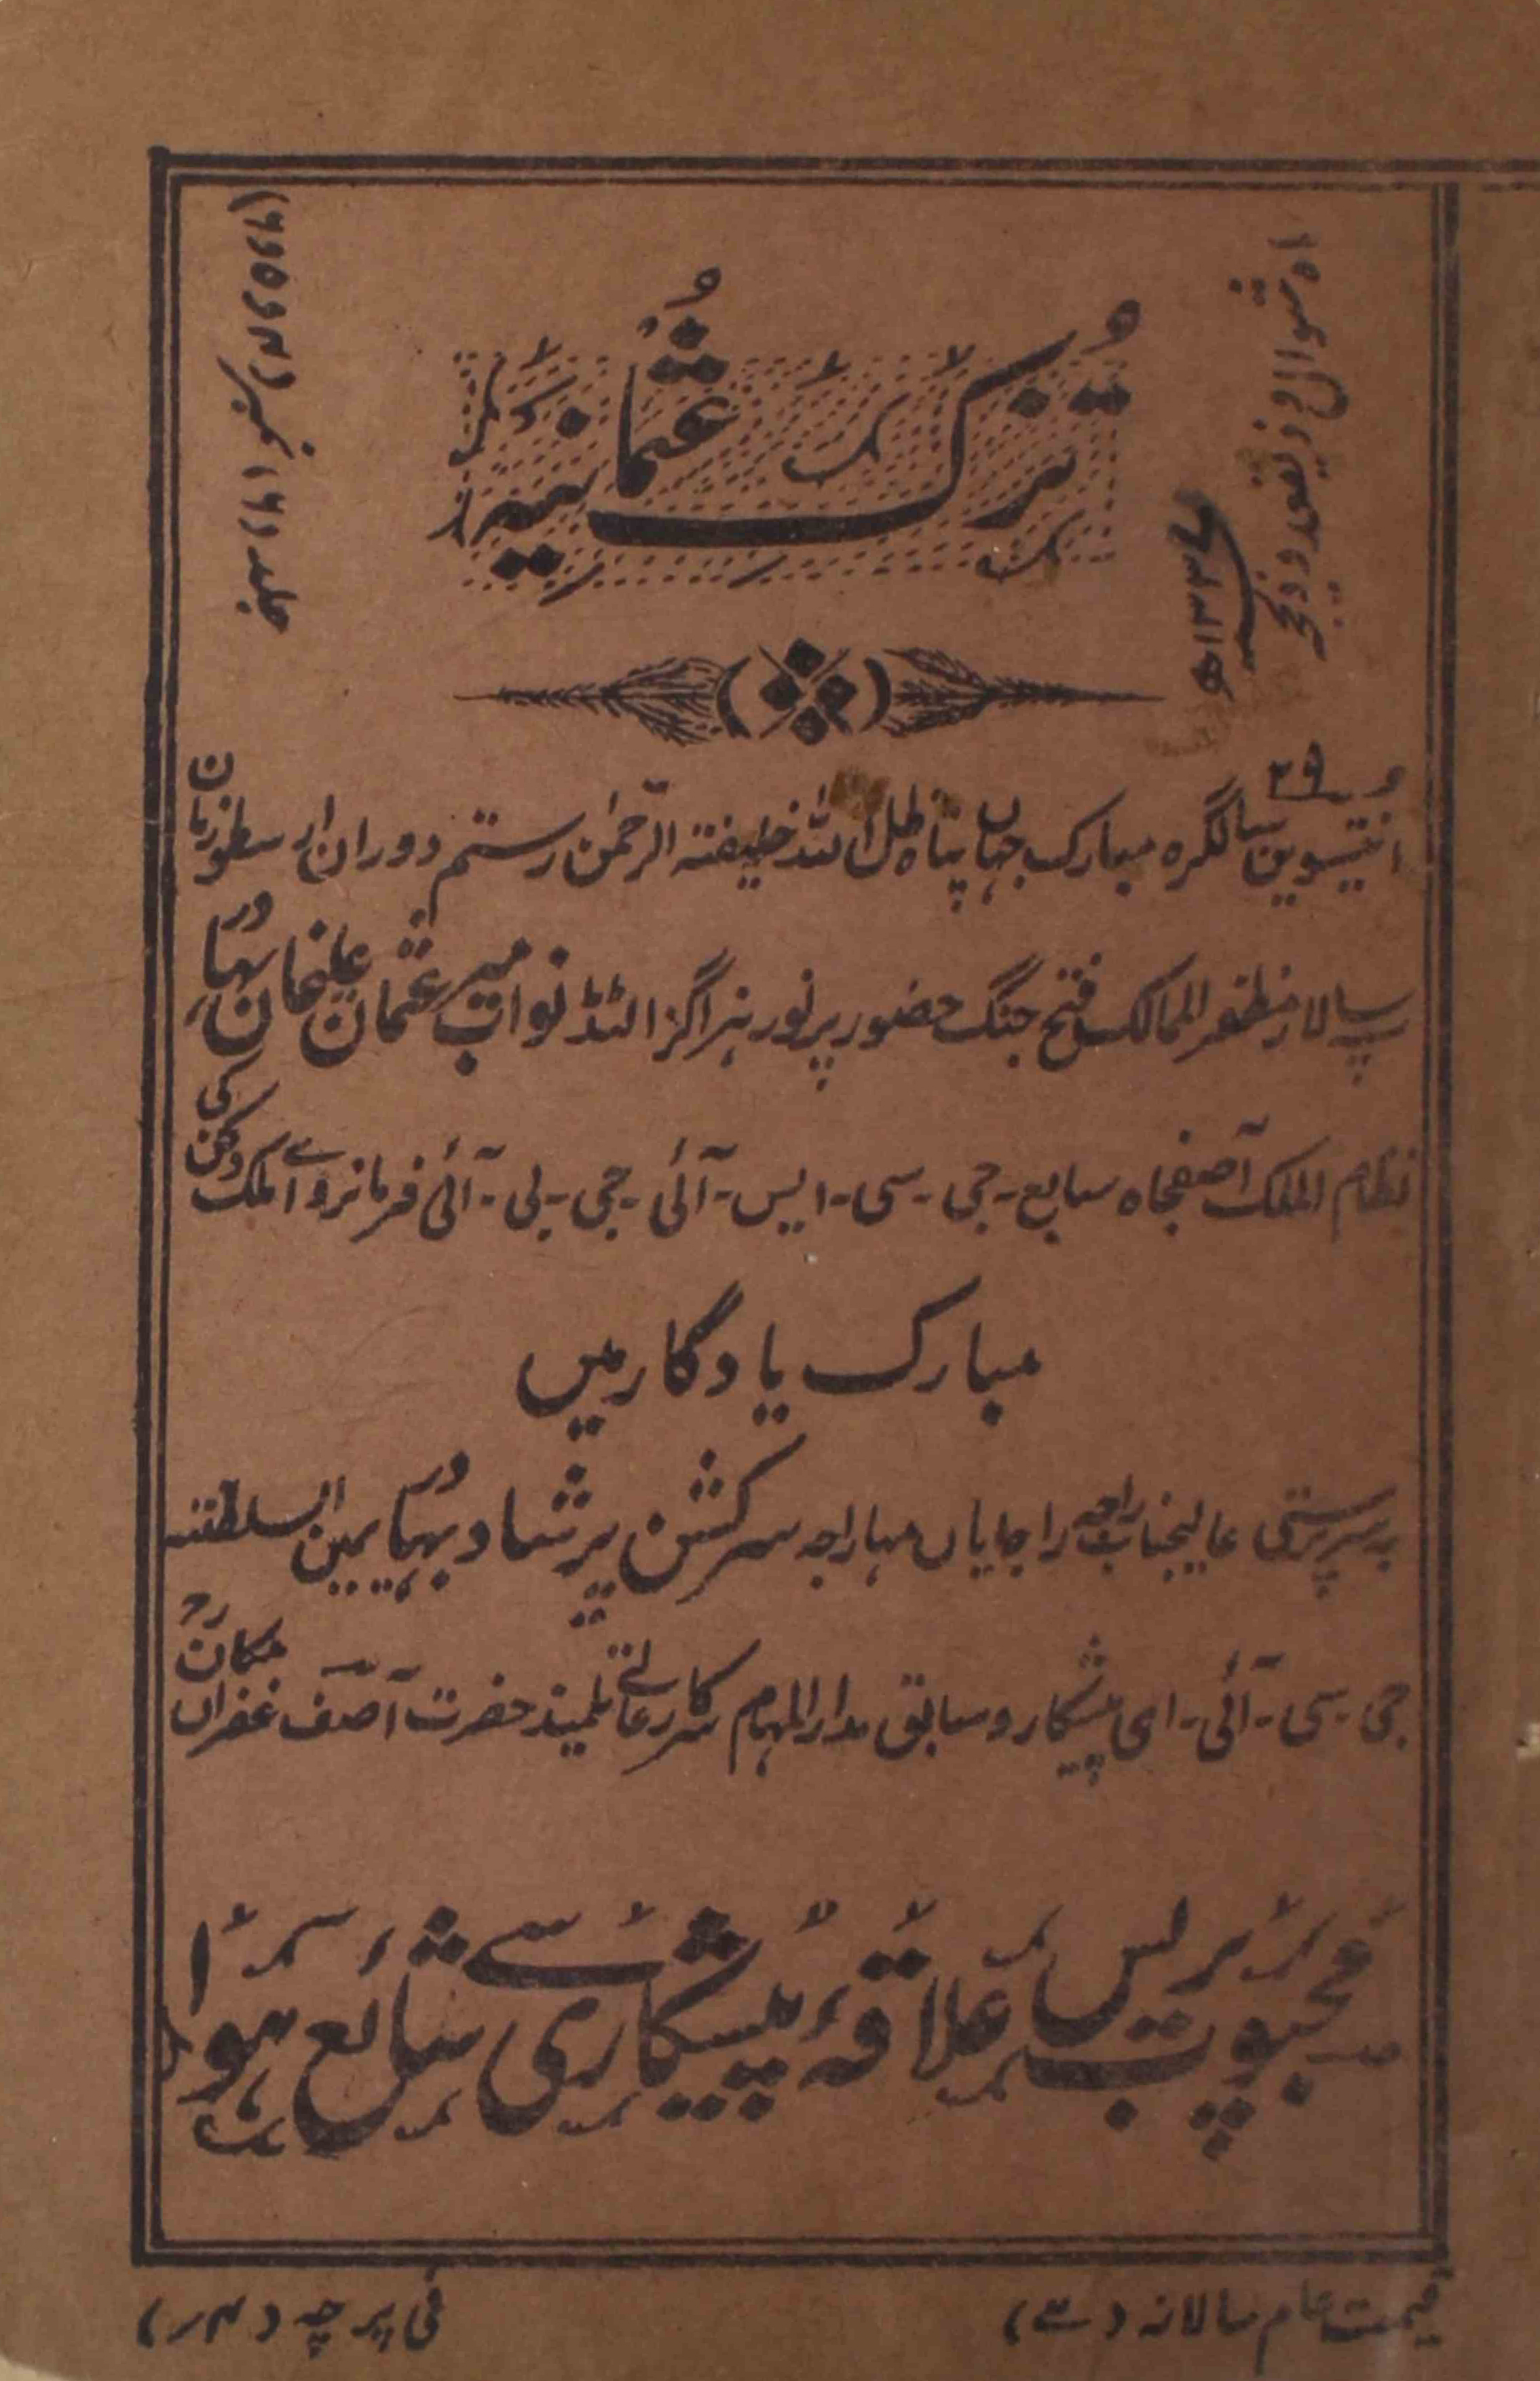 ماہ شوال و ذیقعدہ و ذیحجہ
۱۳۳۲ھ
تزک عثمانیہ
جلد (۲) نمبر (۴ و ۵ و ۶)
۲۹
انتیسویں سالگرہ مبارک جہاں پناہ ظل اللہ خلیفتہ الرحمٰن رستم دوران ارسطوزمان
سپہ سالار مظفر الممالک فتح جنگ حضور پرنور ہزاگزالٹڈ نواب میر عثمان علیخان بہادر
نظام الملک آصفجاہ سابع۔ جی۔ سی۔ ایس۔ آئی۔ جی۔ بی۔ آئی فرمانروائے ملک دکن کی
مبارک یادگار میں
بہ سرپرستی عالیجناب راجہ راجایاں مہاراجہ سر کشن پرشاد بہادر یمین السلطنتہ
جی۔ سی۔ آئی۔ ای پیشکار و سابق مدار المہام سرکار عالی تلمیذ حضرت آصف غفراں مکان رح
محبوب پریس علاقہ پیشکاری سے شائع ہوا
قیمت عام سالانہ
فی پرچہ (۴ر)